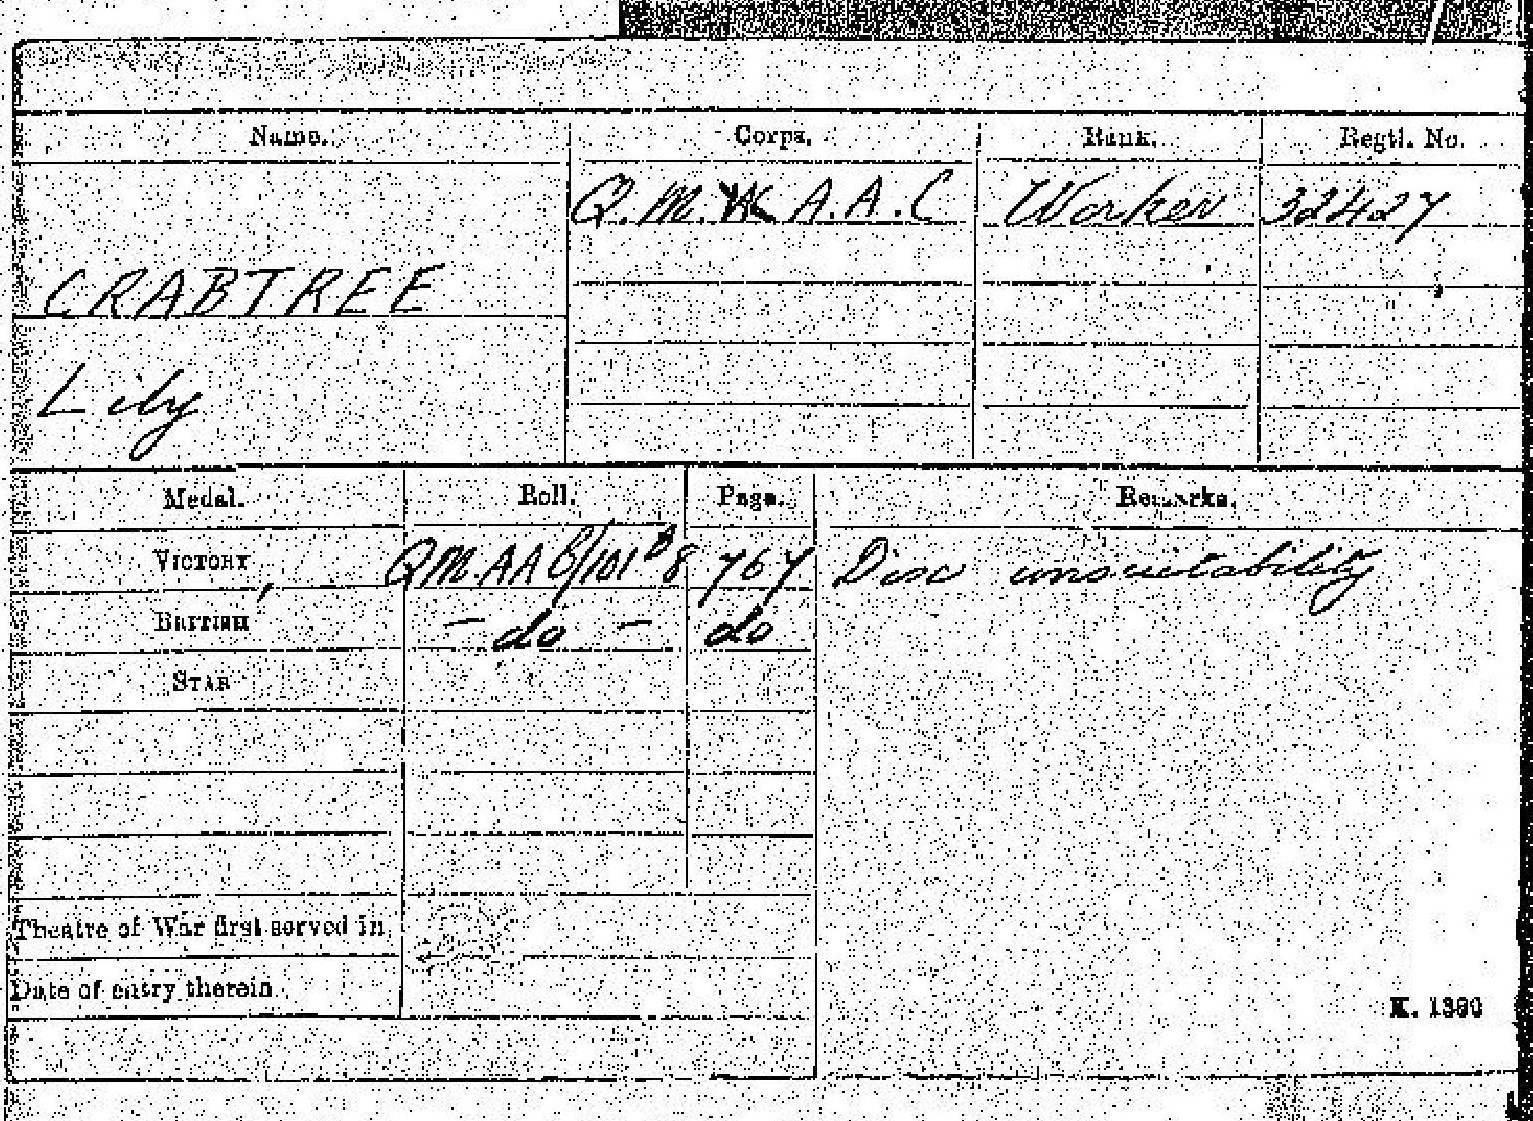 Name. Corps. Rank. Regtl. No.
Q.M.W A.A.C Worker 32427
CRABTREE
Lily
Medal. Roll. Page. Remarks.
VICTORY QMAAC/101B8 767 Disc unsuitability
BRITISH - do - do
STAR
Theatre of War first served in
Date of entry therein
K. 1380